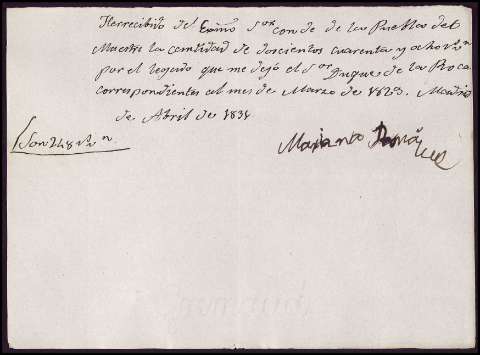 Herrecibido del Exmo Sor conde de la Puebla del
Maestre la cantidad de doscientos cuarenta y ocho rs vn
por el legado que me dejó el Sor Duque de la Roca
correspondientes al mes de Marzo de 1823. Madrid
de Abril de 1834
Son 248 rs vn
Mariano